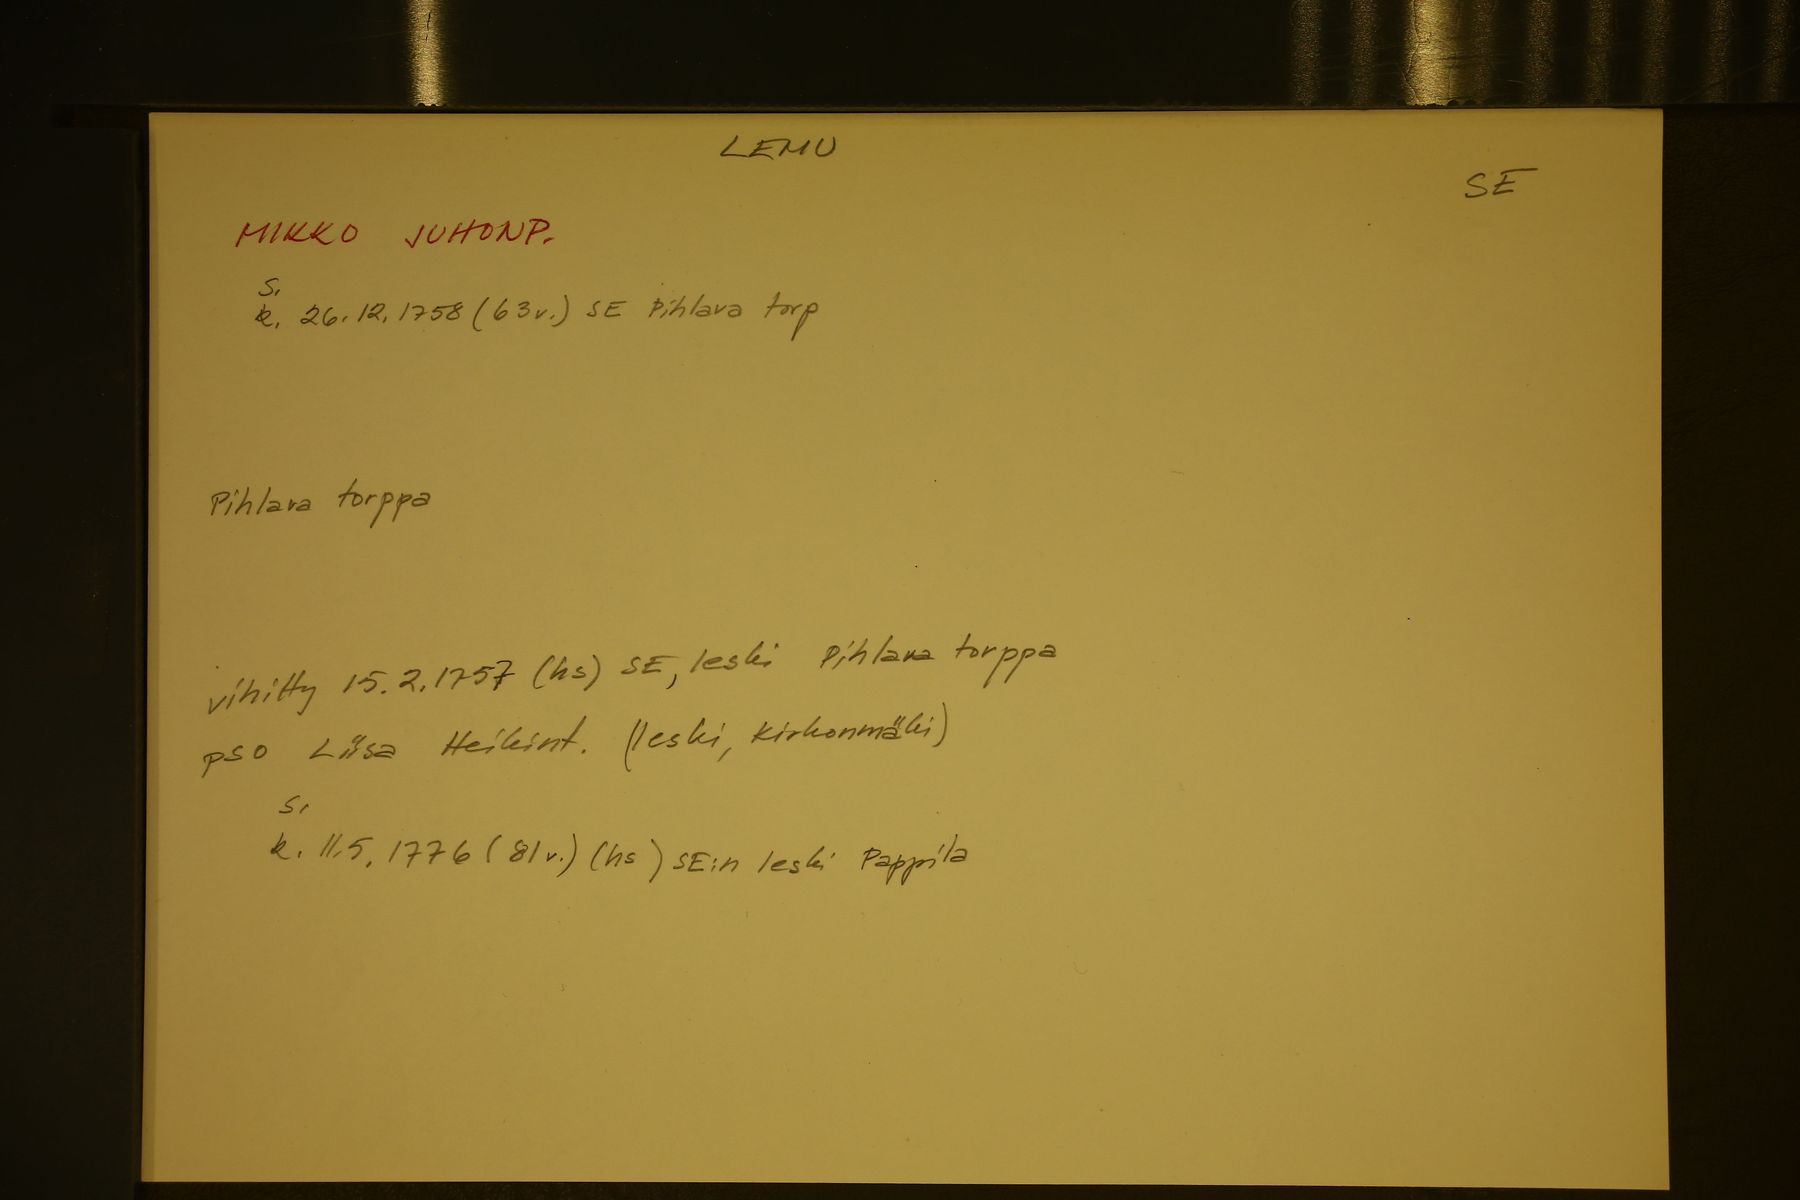 LEMU
SE
MIKKO JUHONP.
s.
k. 26.12.1758 (63v.) SE Pihlava torp
Pihlava torppa
vihitty 15.2.1757 (hs) SE, leski Pihlava torppa
pso Liisa Heikint. (leski, Kirkonmäki)
s.
k. 11.5.1776 (81v.) (hs) SE:n leski Pappila